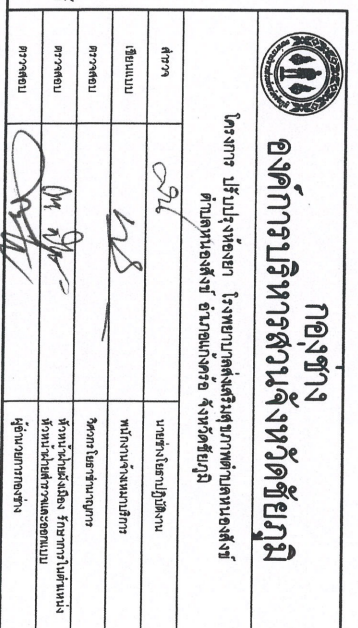 กองช่าง
องค์การบริหารส่วนจังหวัดชัยภูมิ
โครงการ ปรับปรุงห้องยา โรงพยาบาลส่งเสริมสุขภาพตำบลหนองสังข์
ตำบลหนองสังข์ อำเภอแก้งคร้อ จังหวัดชัยภูมิ
สำรวจ
นายช่างโยธาปฏิบัติงาน
เขียนแบบ
พนักงานจ้างเหมาบริการ
ตรวจสอบ
วิศวกรโยธาชำนาญการ
ตรวจสอบ
หัวหน้าฝ่ายผังเมือง รักษาการในตำแหน่ง
หัวหน้าฝ่ายสำรวจและออกแบบ
ตรวจสอบ
ผู้อำนวยการกองช่าง